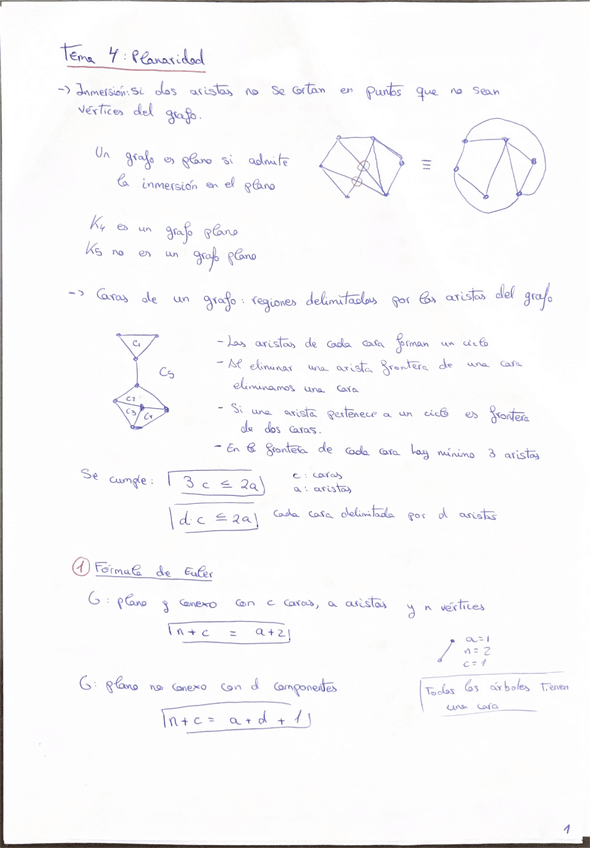 Tema 4: Planaridad
-> Inmersión: si dos aristas no se cortan en puntos que no sean
vértices del grafo.
Un grafo es plano si admite
la inmersión en el plano
≡
K4 es un grafo plano
K5 no es un grafo plano
-> Caras de un grafo: regiones delimitadas por las aristas del grafo
C1
C5
C2
C3
C4
- Las aristas de cada cara forman un ciclo
- Al eliminar una arista frontera de una cara
eliminamos una cara
- Si una arista pertenece a un ciclo es frontera
de dos caras.
- En la frontera de cada cara hay mínimo 3 aristas
Se cumple: 3 c ≤ 2a
c: caras
a: aristas
d·c ≤ 2a cada cara delimitada por d aristas
1 Fórmula de Euler
G: plano y conexo con c caras, a aristas y n vértices
n + c = a+2
a=1
n=2
c=1
G: plano no conexo con d componentes
Todos los árboles tienen
una cara
n+c = a + d + 1
1